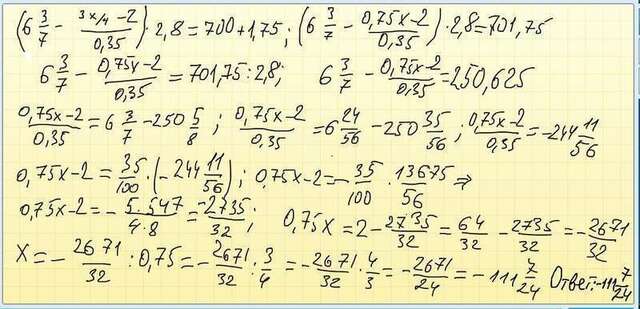 (6 3/7 - (3x/4 - 2)/0,35) · 2,8 = 700 + 1,75 ; (6 3/7 - (0,75x-2)/0,35) · 2,8 = 701,75
6 3/7 - (0,75x-2)/0,35 = 701,75 : 2,8; 6 3/7 - (0,75x-2)/0,35 = 250,625
(0,75x-2)/0,35 = 6 3/7 - 250 5/8 ; (0,75x-2)/0,35 = 6 24/56 - 250 35/56 ; (0,75x-2)/0,35 = -244 11/56
0,75x-2 = 35/100 · (-244 11/56) ; 0,75x-2 = - 35/100 · 13675/56 ⇒
0,75x-2 = - 5·547/4·8 = -2735/32 ; 0,75x = 2 - 2735/32 = 64/32 - 2735/32 = - 2671/32
X = - 2671/32 : 0,75 = - 2671/32 : 3/4 = - 2671/32 · 4/3 = - 2671/24 = - 111 7/24 Ответ: -111 7/24